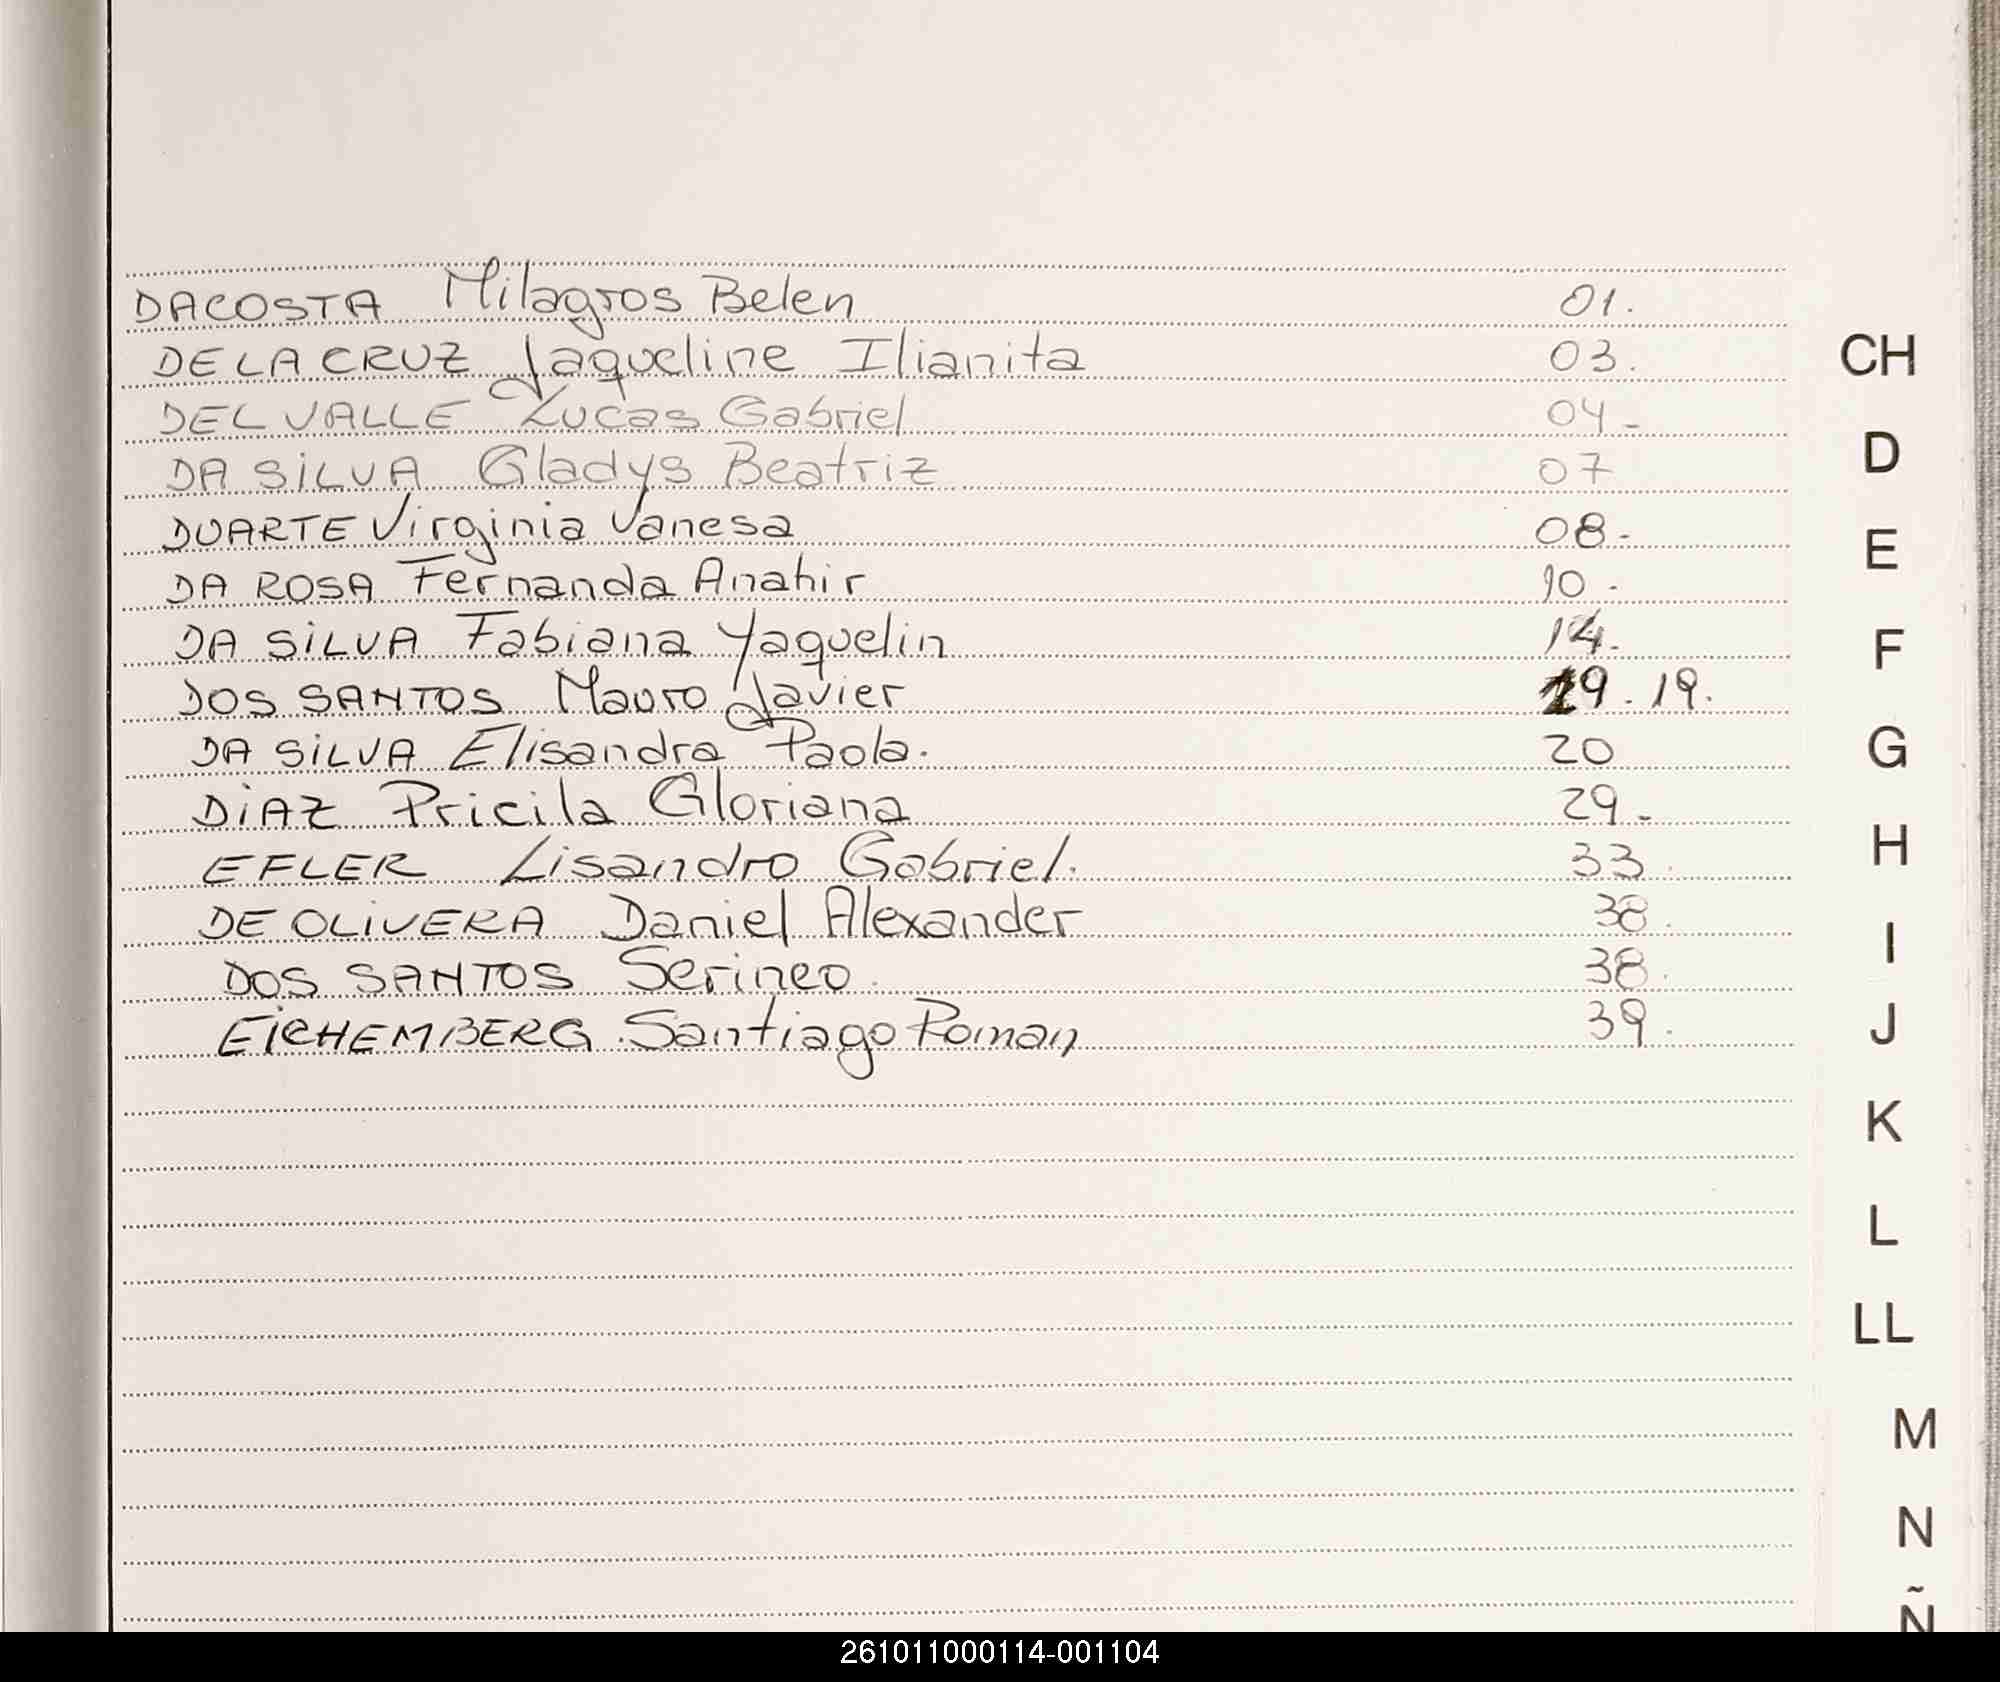 DACOSTA Milagros Belen 01.
DE LA CRUZ Jaqueline Ilianita 03.
DEL VALLE Lucas Gabriel 04-
DA SILVA Gladys Beatriz 07
DUARTE Virginia Vanesa 08-
DA ROSA Fernanda Anahir 10-
DA SILVA Fabiana Yaquelin 14.
DOS SANTOS Mauro Javier 19. 19.
DA SILVA Elisandra Paola. 20
DIAZ Pricila Gloriana 29-
EFLER Lisandro Gabriel. 33.
DE OLIVERA Daniel Alexander 38.
DOS SANTOS Serineo. 38.
EICHEMBERG Santiago Roman 39.
CH
D
E
F
G
H
I
J
K
L
LL
M
N
Ñ
261011000114-001104